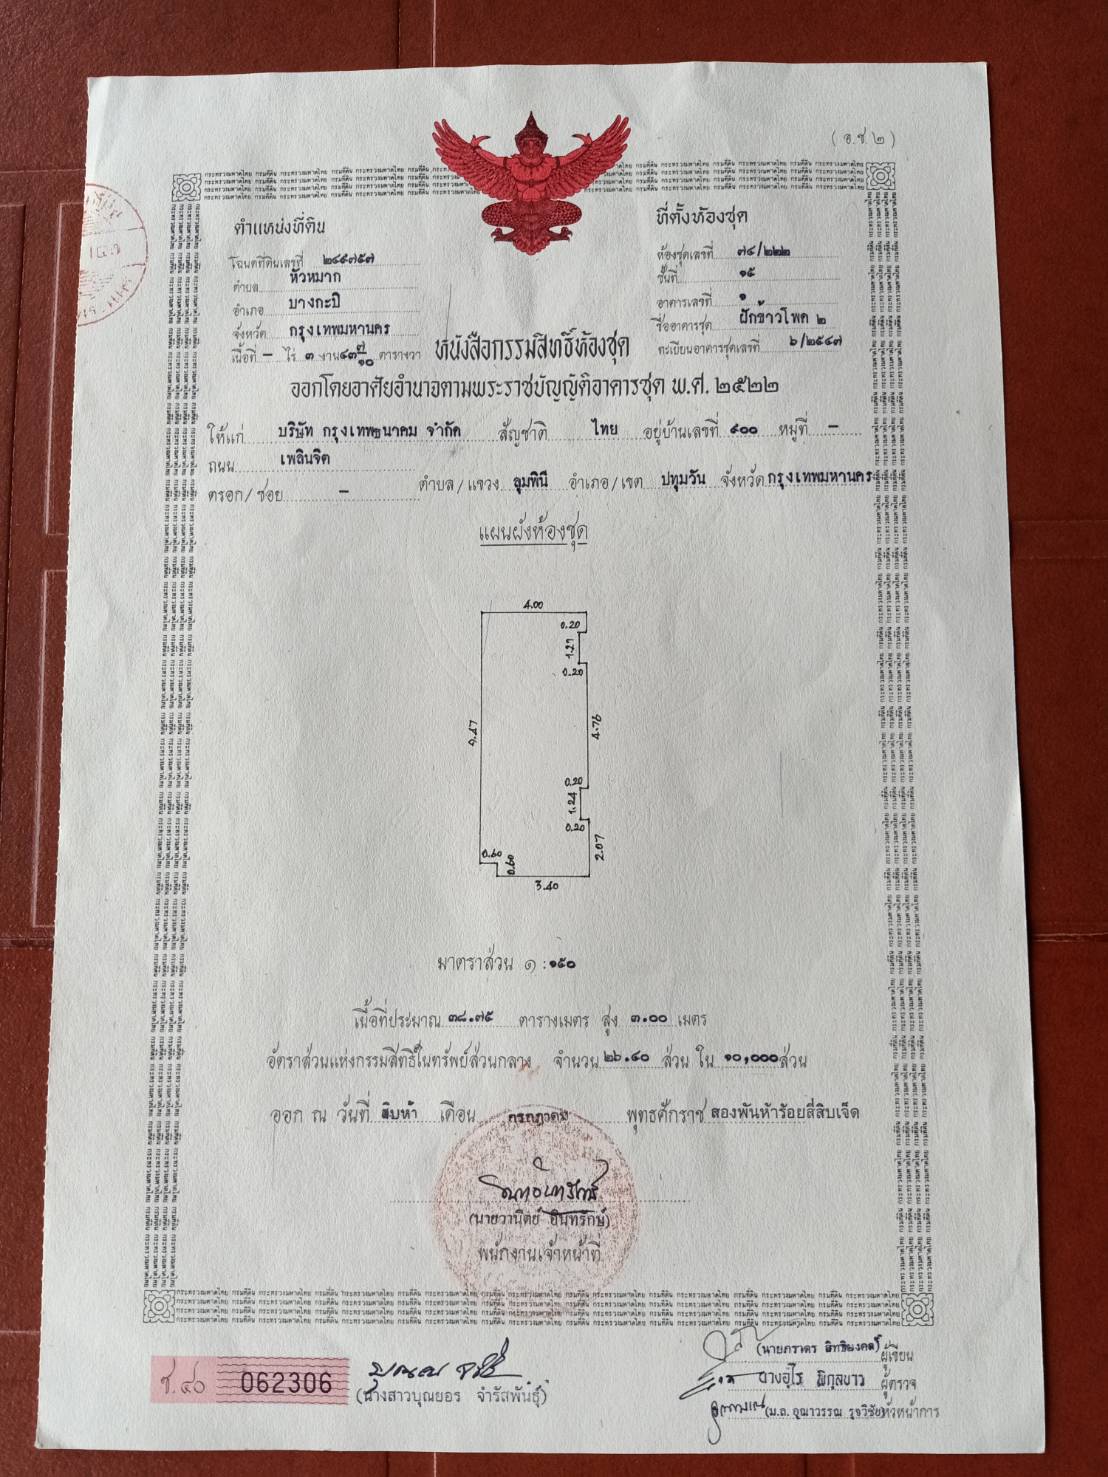 ( อ.ช.๒ )
ตำแหน่งที่ดิน
โฉนดที่ดินเลขที่ ๒๔๕๗๕๗
ตำบล หัวหมาก
อำเภอ บางกะปิ
จังหวัด กรุงเทพมหานคร
เนื้อที่ – ไร่ ๓ งาน ๔๓ ๗/๑๐ ตารางวา
ที่ตั้งห้องชุด
ห้องชุดเลขที่ ๗๔/๒๒๒
ชั้นที่ ๑๕
อาคารเลขที่ ๑
ชื่ออาคารชุด ฝักข้าวโพด ๒
ทะเบียนอาคารชุดเลขที่ ๖/๒๕๔๗
หนังสือกรรมสิทธิ์ห้องชุด
ออกโดยอาศัยอำนาจตามพระราชบัญญัติอาคารชุด พ.ศ. ๒๕๒๒
ให้แก่ บริษัท กรุงเทพธนาคม จำกัด สัญชาติ ไทย อยู่บ้านเลขที่ ๙๐๐ หมู่ที่ –
ถนน เพลินจิต
ตรอก/ซอย – ตำบล/แขวง ลุมพินี อำเภอ/เขต ปทุมวัน จังหวัด กรุงเทพมหานคร
แผนผังห้องชุด
4.00
0.20
1.27
0.20
9.47
4.76
0.20
1.24
0.20
2.07
0.60
0.60
3.40
มาตราส่วน ๑ : ๑๕๐
เนื้อที่ประมาณ ๓๘.๗๕ ตารางเมตร สูง ๓.๐๐ เมตร
อัตราส่วนแห่งกรรมสิทธิ์ในทรัพย์ส่วนกลาง จำนวน ๒๖.๔๐ ส่วน ใน ๑๐,๐๐๐ ส่วน
ออก ณ วันที่ สิบห้า เดือน กรกฎาคม พุทธศักราช สองพันห้าร้อยสี่สิบเจ็ด
(นายวานิตย์ อินทรักษ์)
พนักงานเจ้าหน้าที่
ช.๔๐ 062306
(นางสาวบุณยอร จำรัสพันธุ์)
ผู้เขียน
นางอุไร พิกุลขาว ผู้ตรวจ
หัวหน้าการ